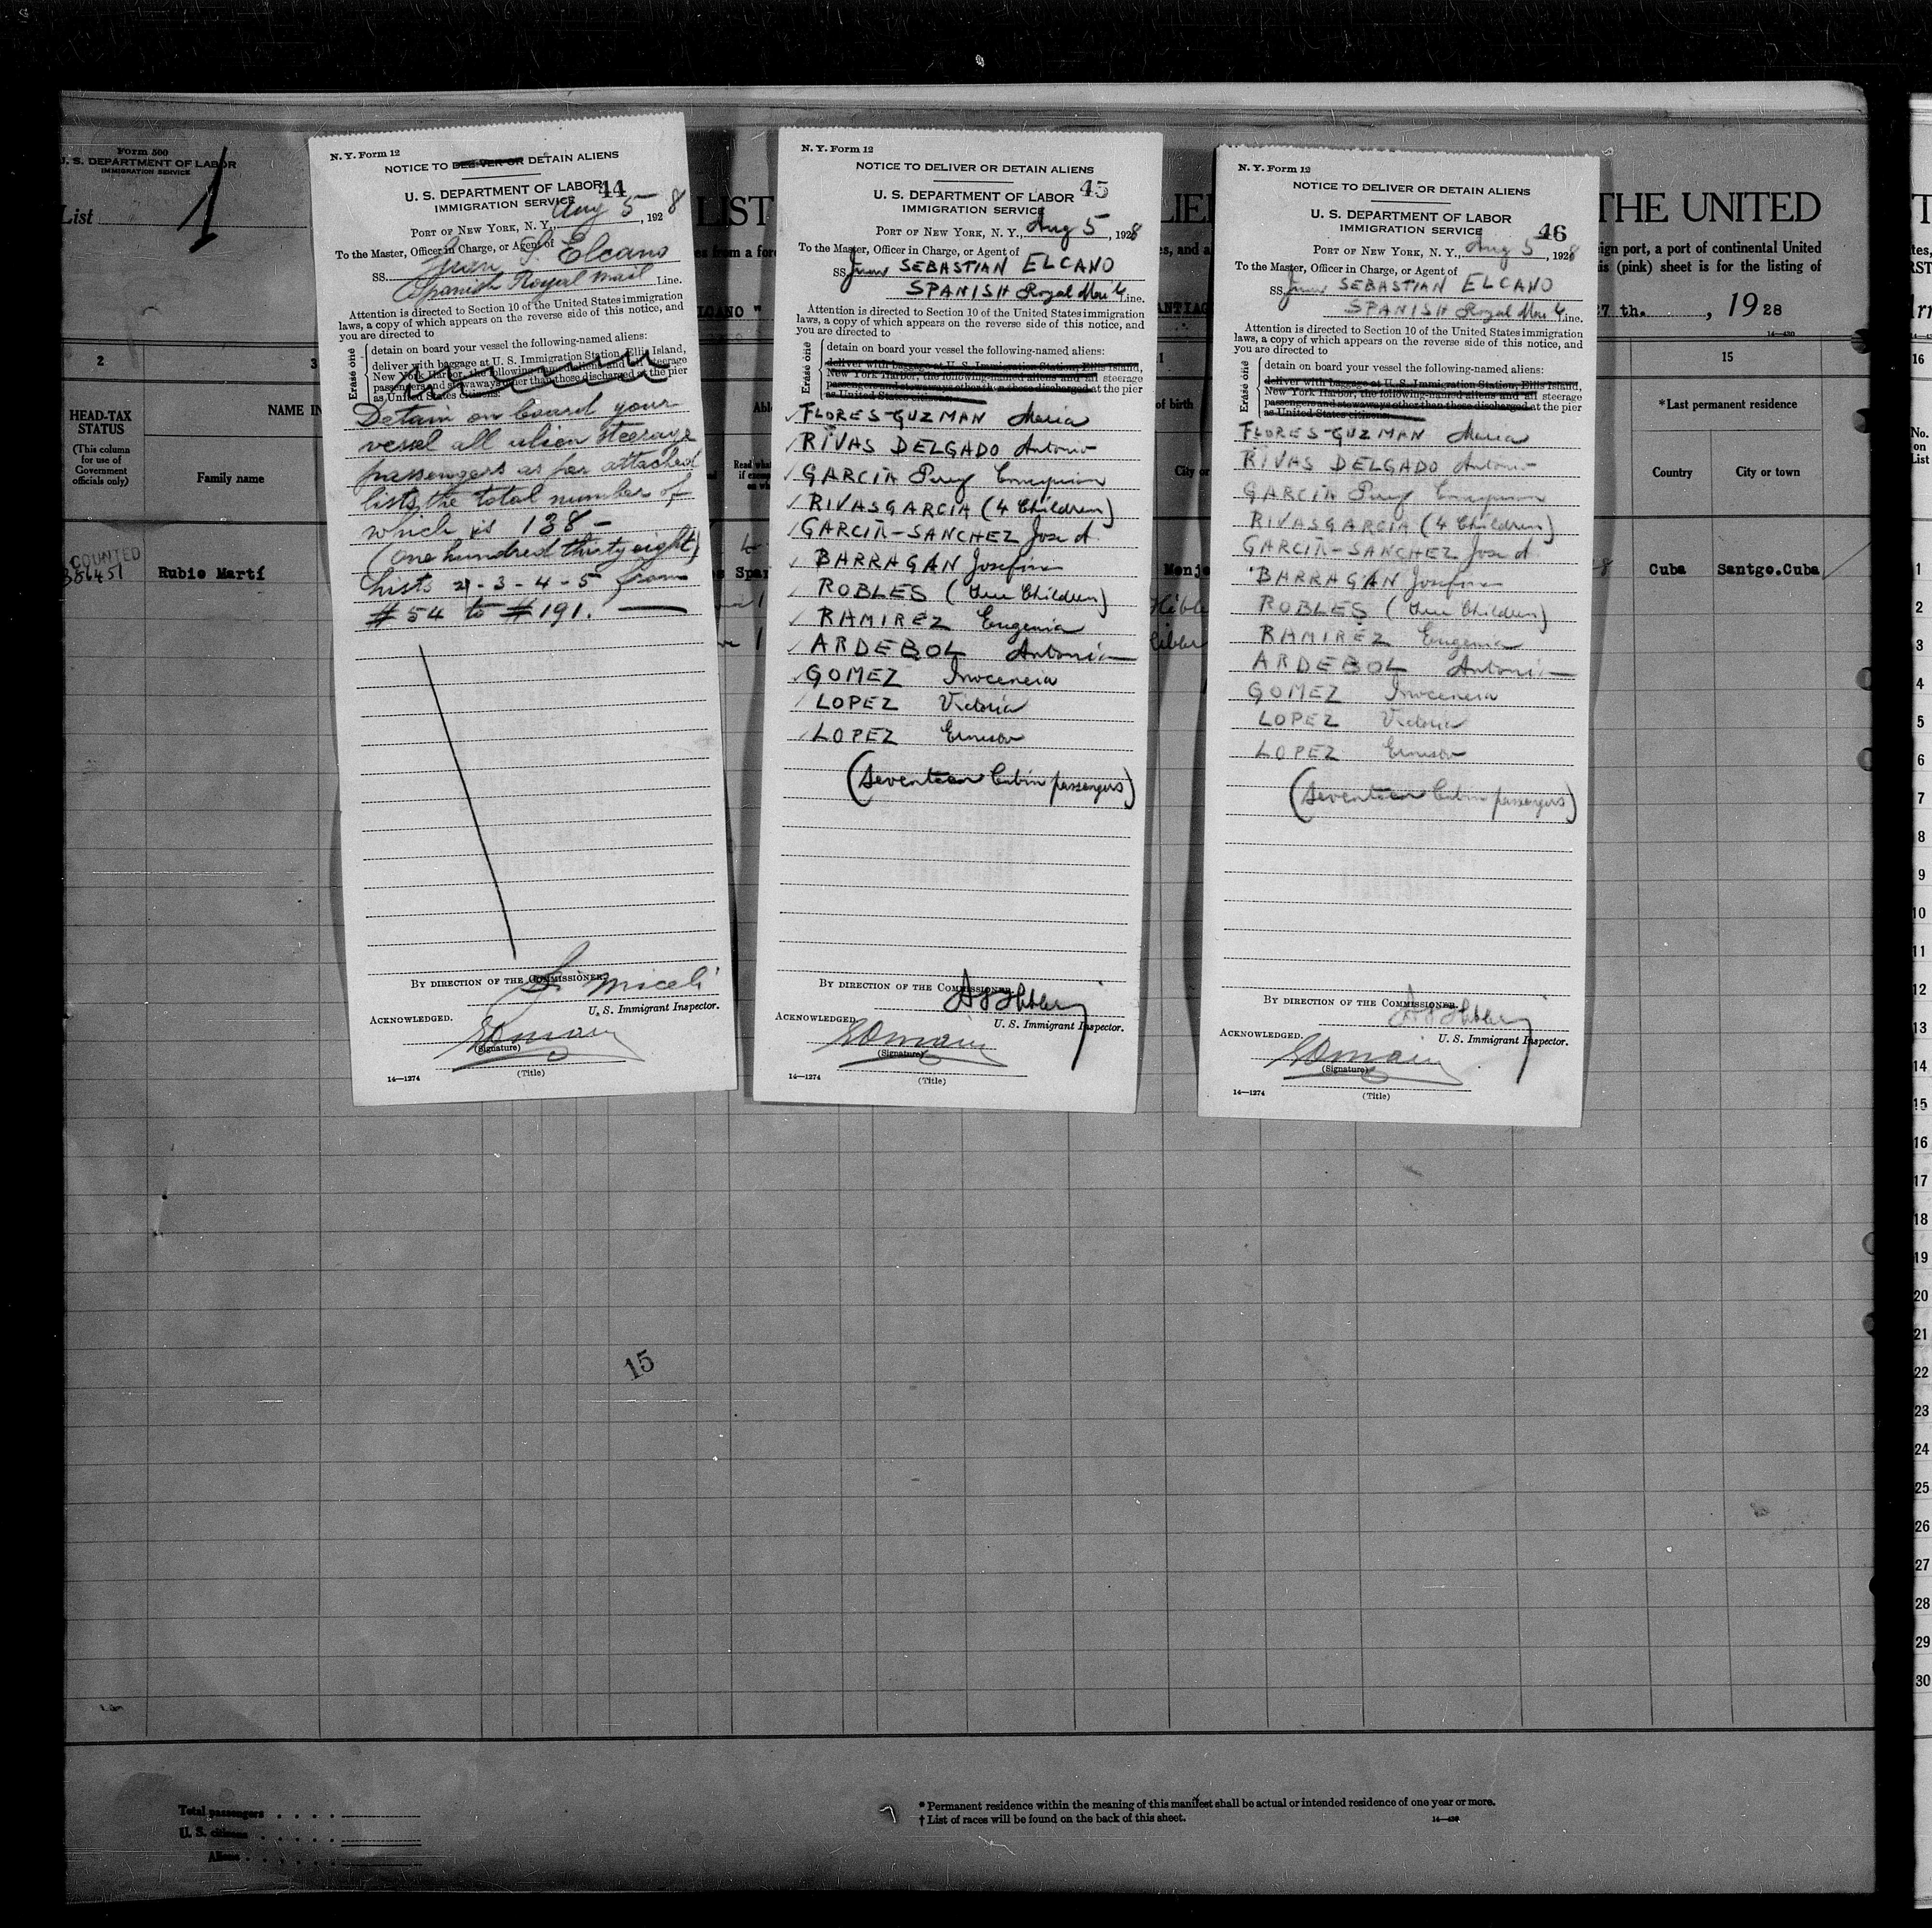 Form 500
U. S. DEPARTMENT OF LABOR
IMMIGRATION SERVICE
List 1
LIST
LIE
THE UNITED
es from a for
es, and a
ign port, a port of continental United
is (pink) sheet is for the listing of
CANO "
ANTIAG
27 th. , 1928
14—430
2
3
15
HEAD-TAX
STATUS
(This column
for use of
Government
officials only)
NAME IN
Family name
of birth
City or
*Last permanent residence
Country
City or town
COUNTED
386451
Rubio Martí
Spa
Monje
Cuba
Santgo.Cuba
N. Y. Form 12
NOTICE TO DELIVER OR DETAIN ALIENS
U. S. DEPARTMENT OF LABOR 44
IMMIGRATION SERVICE
PORT OF NEW YORK, N. Y., Aug 5, 1928
To the Master, Officer in Charge, or Agent of
SS. Juan S. Elcano
Spanish Royal Mail Line.
Attention is directed to Section 10 of the United States immigration
laws, a copy of which appears on the reverse side of this notice, and
you are directed to
Erase one
detain on board your vessel the following-named aliens:
deliver with baggage at U. S. Immigration Station, Ellis Island,
New York Harbor, the following-named aliens and all steerage
passengers and stowaways other than those discharged at the pier
as United States citizens:
Detain on board your
vessel all alien steerage
passengers as per attached
lists, the total number of
which is 138 -
(One hundred thirty eight)
Lists 2 - 3 - 4 - 5 from
#54 to #191.
BY DIRECTION OF THE COMMISSIONER.
Miceli
U. S. Immigrant Inspector.
ACKNOWLEDGED.
(Signature)
(Title)
14—1274
N. Y. Form 12
NOTICE TO DELIVER OR DETAIN ALIENS
U. S. DEPARTMENT OF LABOR 45
IMMIGRATION SERVICE
PORT OF NEW YORK, N. Y., Aug 5, 1928
To the Master, Officer in Charge, or Agent of
SS Juan SEBASTIAN ELCANO
SPANISH Royal Mail Line.
Attention is directed to Section 10 of the United States immigration
laws, a copy of which appears on the reverse side of this notice, and
you are directed to
Erase one
detain on board your vessel the following-named aliens:
deliver with baggage at U. S. Immigration Station, Ellis Island,
New York Harbor, the following-named aliens and all steerage
passengers and stowaways other than those discharged at the pier
as United States citizens:
FLORES-GUZMAN Maria
RIVAS DELGADO Antonio
GARCIA Concepcion
RIVAS GARCIA (4 Children)
GARCIA-SANCHEZ Jose A.
BARRAGAN Josefina
ROBLES (Children)
RAMIREZ Eugenia
ARDEBOL Antonia
GOMEZ Inocencia
LOPEZ Victoria
LOPEZ
(Seventeen Cabin passengers)
BY DIRECTION OF THE COMMISSIONER.
U. S. Immigrant Inspector.
ACKNOWLEDGED.
(Signature)
(Title)
14—1274
N. Y. Form 12
NOTICE TO DELIVER OR DETAIN ALIENS
U. S. DEPARTMENT OF LABOR
IMMIGRATION SERVICE 46
PORT OF NEW YORK, N. Y., Aug 5, 1928
To the Master, Officer in Charge, or Agent of
SS. Juan SEBASTIAN ELCANO
SPANISH Royal Mail Line.
Attention is directed to Section 10 of the United States immigration
laws, a copy of which appears on the reverse side of this notice, and
you are directed to
Erase one
detain on board your vessel the following-named aliens:
deliver with baggage at U. S. Immigration Station, Ellis Island,
New York Harbor, the following-named aliens and all steerage
passengers and stowaways other than those discharged at the pier
as United States citizens:
FLORES-GUZMAN Maria
RIVAS DELGADO Antonio
GARCIA Concepcion
RIVAS GARCIA (4 Children)
GARCIA-SANCHEZ Jose A.
BARRAGAN Josefina
ROBLES (Children)
RAMIREZ Eugenia
ARDEBOL Antonia
GOMEZ Inocencia
LOPEZ Victoria
LOPEZ
(Seventeen Cabin passengers)
BY DIRECTION OF THE COMMISSIONER.
U. S. Immigrant Inspector.
ACKNOWLEDGED.
(Signature)
(Title)
14—1274
16
No.
on
List
1
2
3
4
5
6
7
8
9
10
11
12
13
14
15
16
17
18
19
20
21
22
23
24
25
26
27
28
29
30
15
Total passengers
U. S. citizens
Aliens
* Permanent residence within the meaning of this manifest shall be actual or intended residence of one year or more.
† List of races will be found on the back of this sheet.
14—430